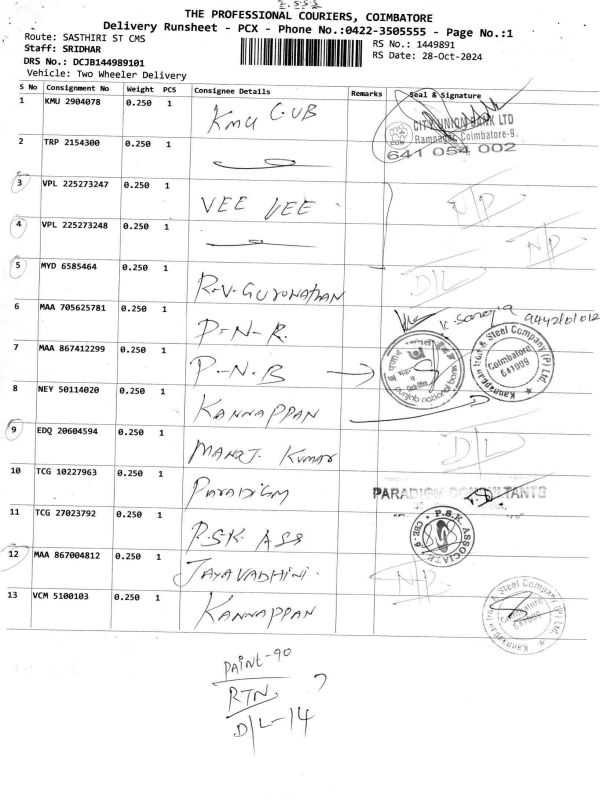 2.S.S.S
THE PROFESSIONAL COURIERS, COIMBATORE
Delivery Runsheet - PCX - Phone No.:0422-3505555 - Page No.:1
Route: SASTHIRI ST CMS
RS No.: 1449891
Staff: SRIDHAR
RS Date: 28-Oct-2024
DRS No.: DCJB144989101
Vehicle: Two Wheeler Delivery
S No Consignment No Weight PCS Consignee Details Remarks Seal & Signature
1 KMU 2904078 0.250 1 KMU CUB
CITY UNION BANK LTD
Ramnagar, Coimbatore-9.
641 054 002
2 TRP 2154300 0.250 1
3 VPL 225273247 0.250 1 VEE VEE N/D
4 VPL 225273248 0.250 1 N/D
5 MYD 6585464 0.250 1 R-V-GURUNATHAN D/L
6 MAA 705625781 0.250 1 P-N-R.
7 MAA 867412299 0.250 1 P-N-B
punjab national bank
Kannappan Iron & Steel Company (P) Ltd.
Coimbatore
641009
8 NEY 50114020 0.250 1 KANNAPPAN
9 EDQ 20604594 0.250 1 MANOJ. KUMAR D/L
10 TCG 10227963 0.250 1 PARADIGM PARADIGM CONSULTANTS
11 TCG 27023792 0.250 1 P.S.K. ASS
P.S.K. ASSOCIATE
CBE-9
12 MAA 867004812 0.250 1 JAYAVADHINI. N/D
13 VCM 5100103 0.250 1 KANNAPPAN
Kannappan Iron & Steel Company (P) Ltd.
Coimbatore
641009
PAINT-90
RTN
D/L-14